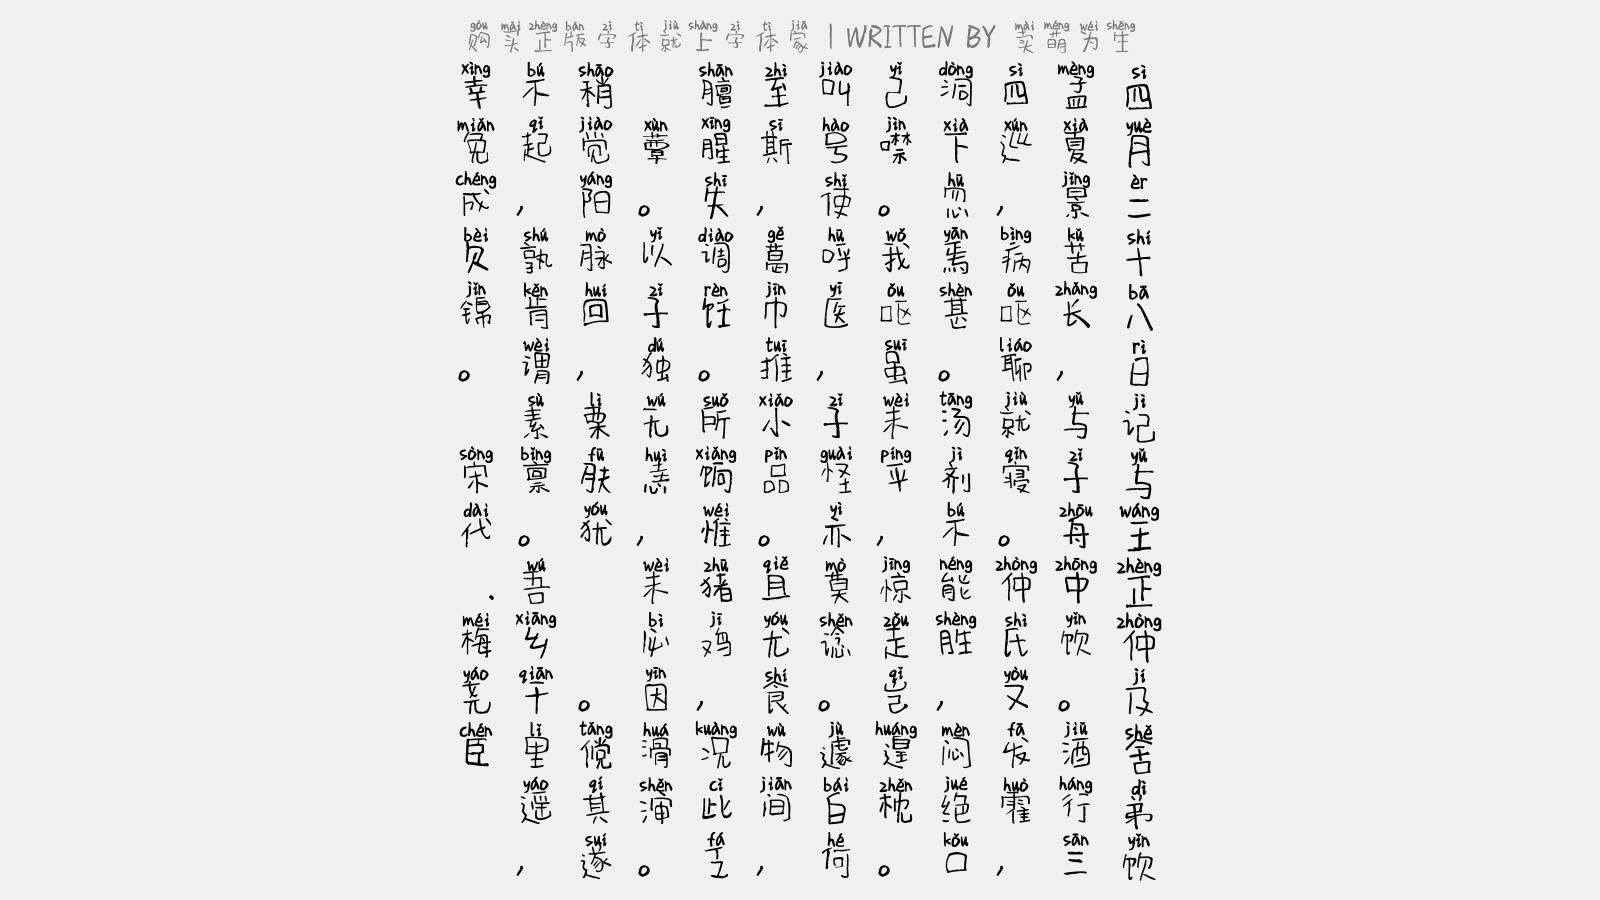 购买正版字体就上字体家 | WRITTEN BY 卖萌为生
四月二十八日记与王正仲及舍弟饮
孟夏景苦长,与子舟中饮。酒行三
四巡,病呕聊就寝。仲氏又发霍,
洞下忽焉甚。汤剂不能胜,闷绝口
己噤。我呕虽未平,惊走岂遑枕。
叫号使呼医,子怪亦莫谂。遽白何
至斯,葛巾推小品。且尤食物间,
膻腥失调饪。所饷惟猪鸡,况此乏
蕈。以子独无恚,未必因滑渖。
稍觉阳脉回,栗肤犹。傥其遂
不起,孰肯谓素禀。吾乡千里遥,
幸兔成贝锦。
宋代·梅尧臣